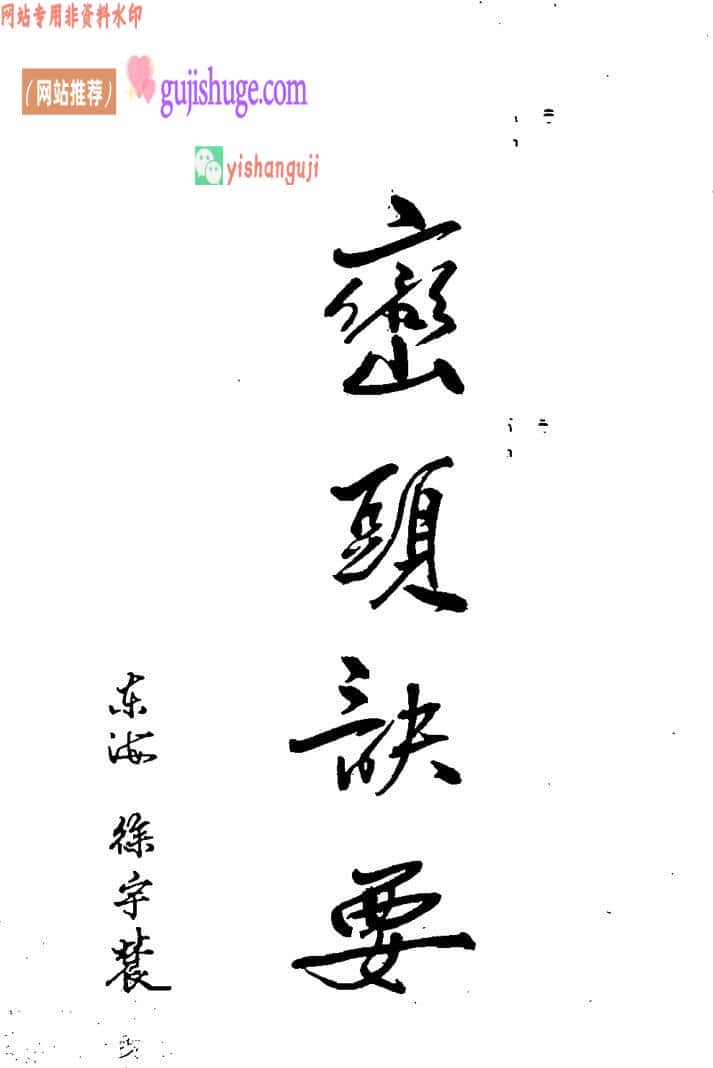 网站专用非资料水印
(网站推荐)
gujishuge.com
yishanguji
巒頭訣要
东海 徐宇辳